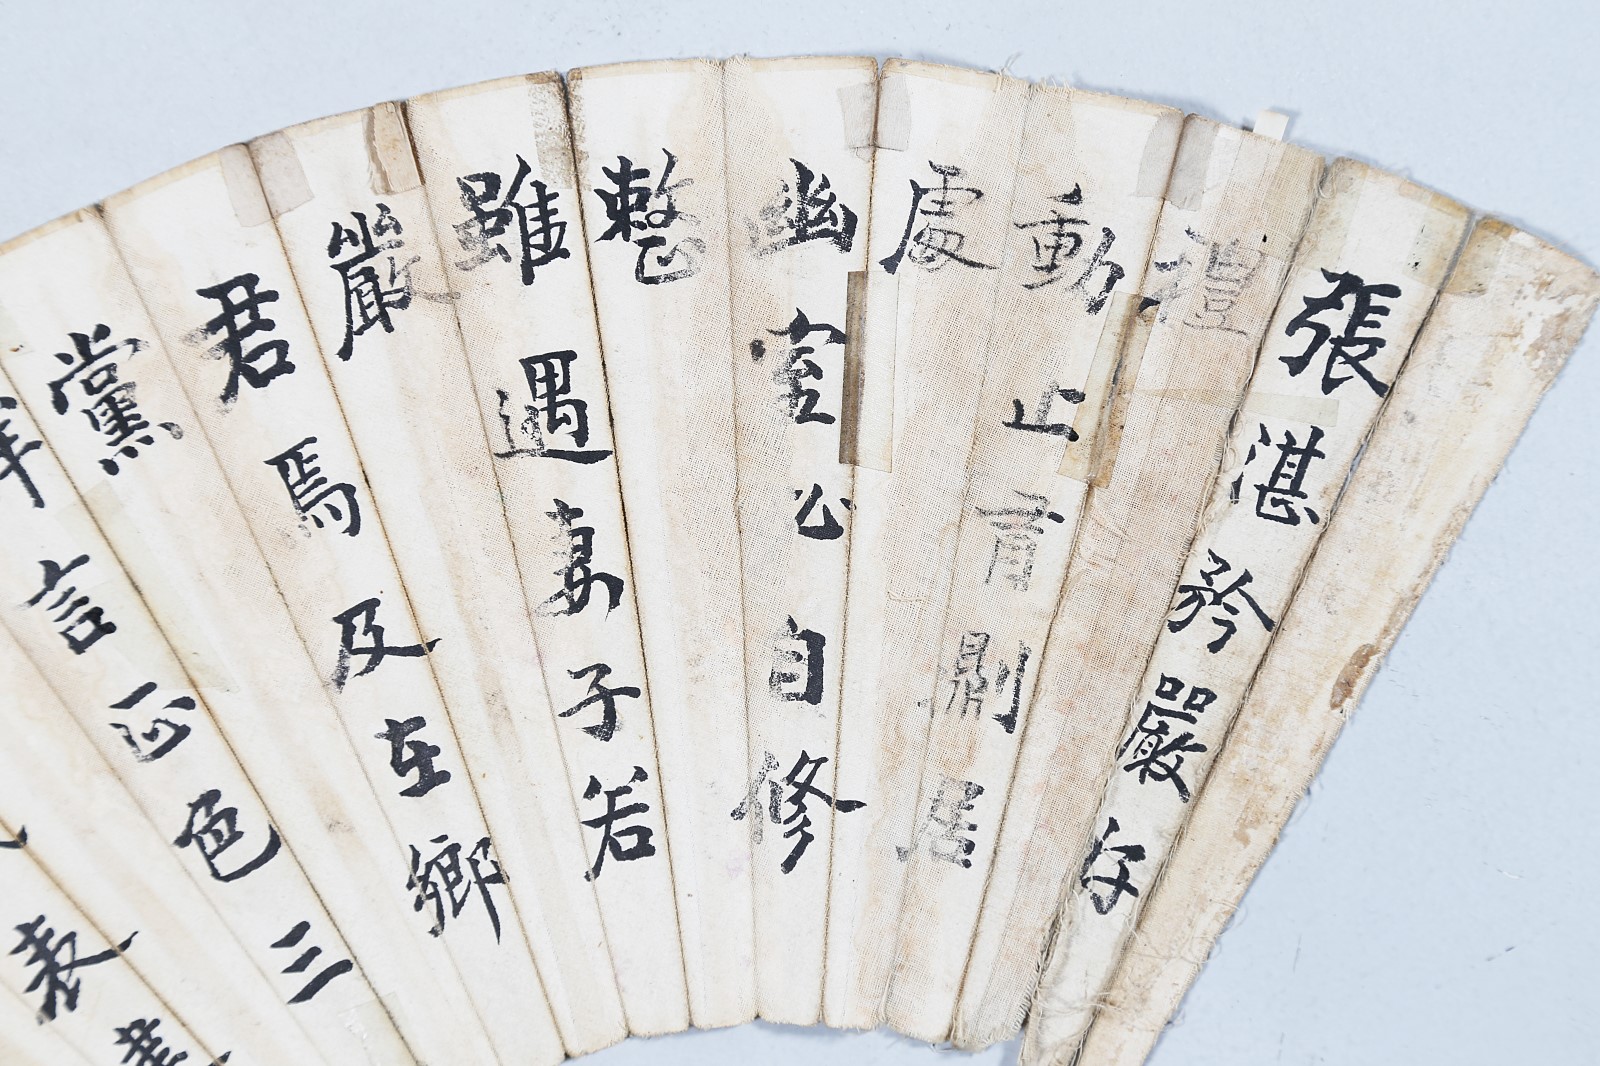 張湛矜嚴好
禮
動止有則居
處
幽室必自修
整
雖遇妻子若
嚴
君焉及在鄉
黨
言正色三
表